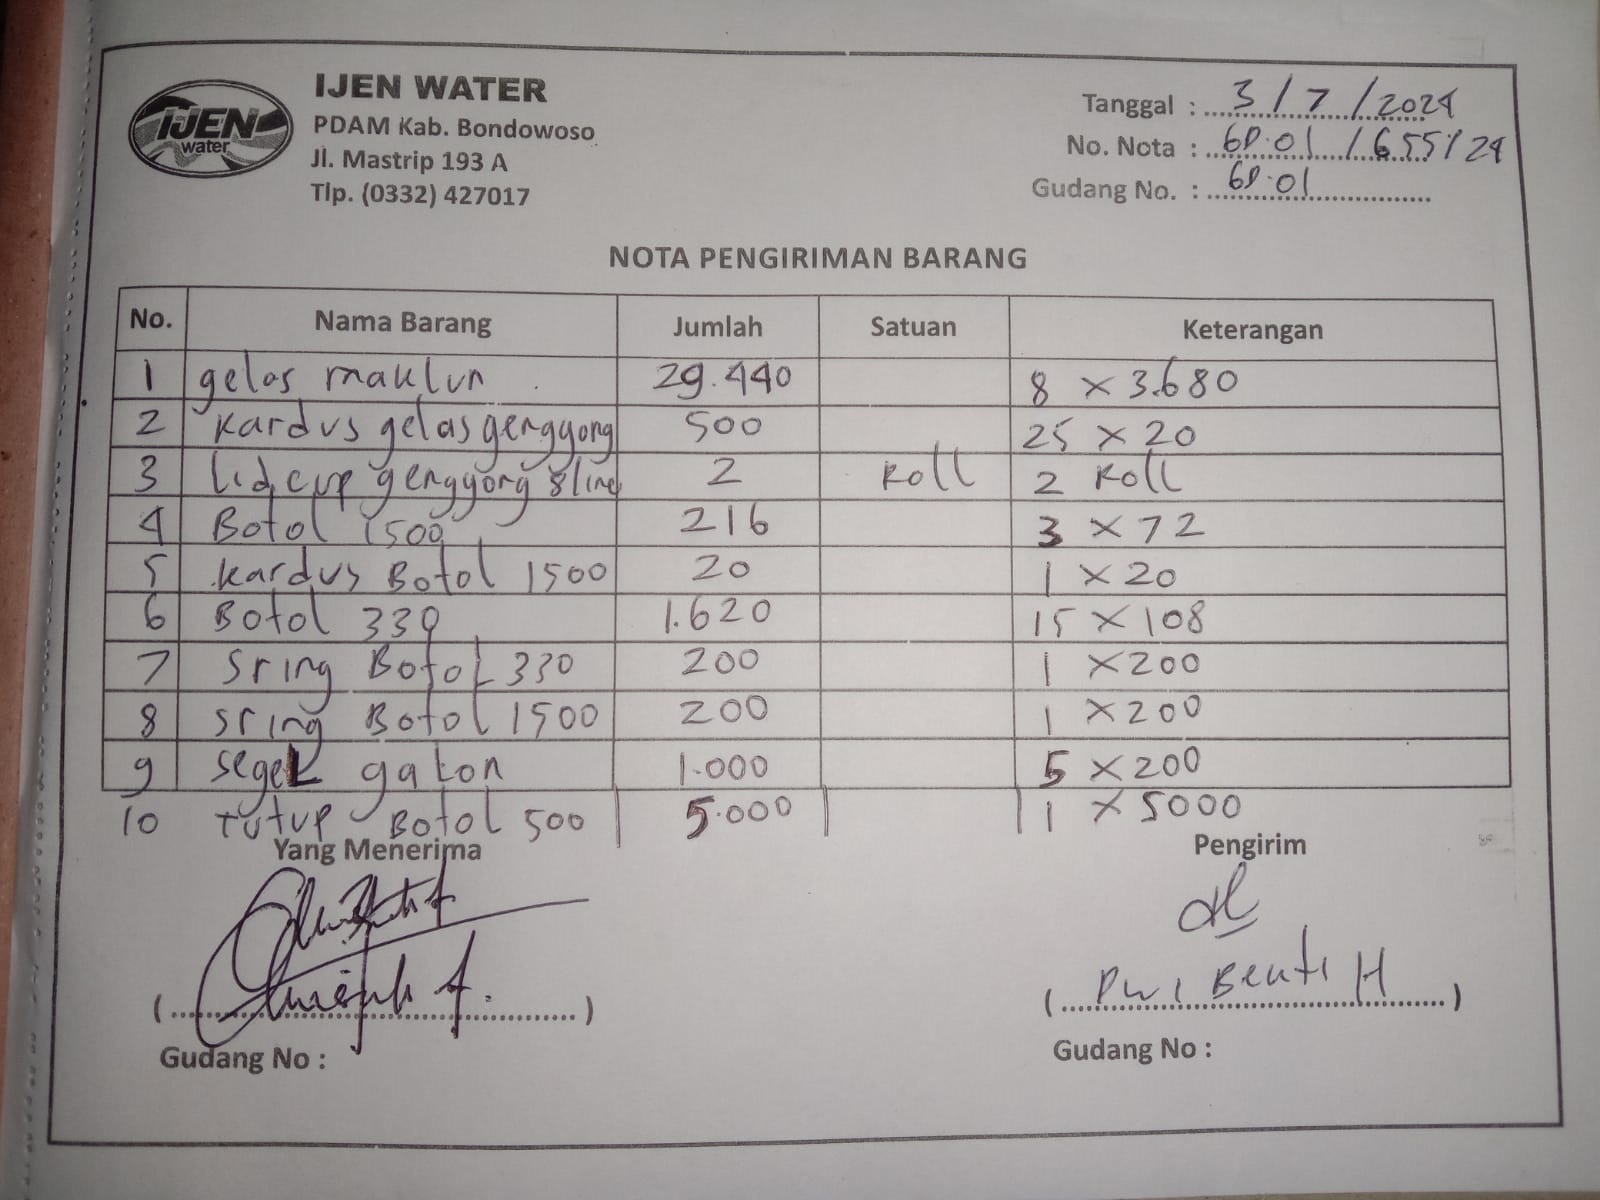 IJEN
water
IJEN WATER
PDAM Kab. Bondowoso
Jl. Mastrip 193 A
Tlp. (0332) 427017
Tanggal : 3 / 7 / 2024
No. Nota : 6D.01 / 655 / 24
Gudang No. : 6D.01
NOTA PENGIRIMAN BARANG
No. Nama Barang Jumlah Satuan Keterangan
1 gelas maklun 29.440 8 x 3.680
2 kardus gelas genggong 500 25 x 20
3 Lid cup genggong 8 line 2 Roll 2 Roll
4 Botol 1500 216 3 x 72
5 kardus Botol 1500 20 1 x 20
6 Botol 330 1.620 15 x 108
7 Sring Botol 330 200 1 x 200
8 Sring Botol 1500 200 1 x 200
9 segel galon 1.000 5 x 200
10 Tutup Botol 500 5.000 1 x 5000
Yang Menerima Pengirim
(....................) (.... H ....)
Gudang No : Gudang No :